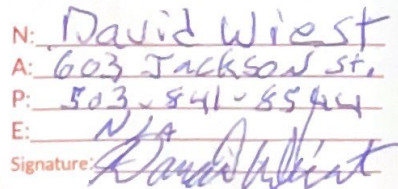 N: David Wiest
A: 603 Jackson St.
P: 503-841-8544
E: N/A
Signature: David Wiest